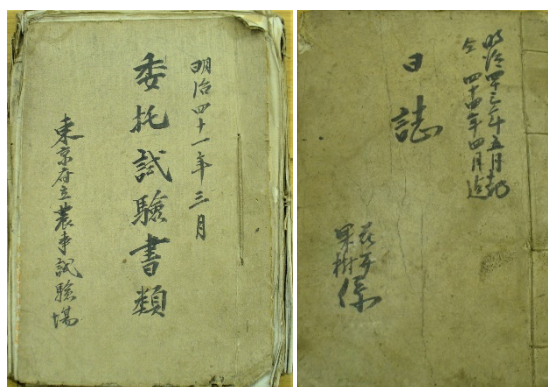 明治四十一年三月
委托試驗書類
東京府立農事試驗場
明治四十三年五月起
仝 四十四年四月迄
日誌
花卉
果樹係